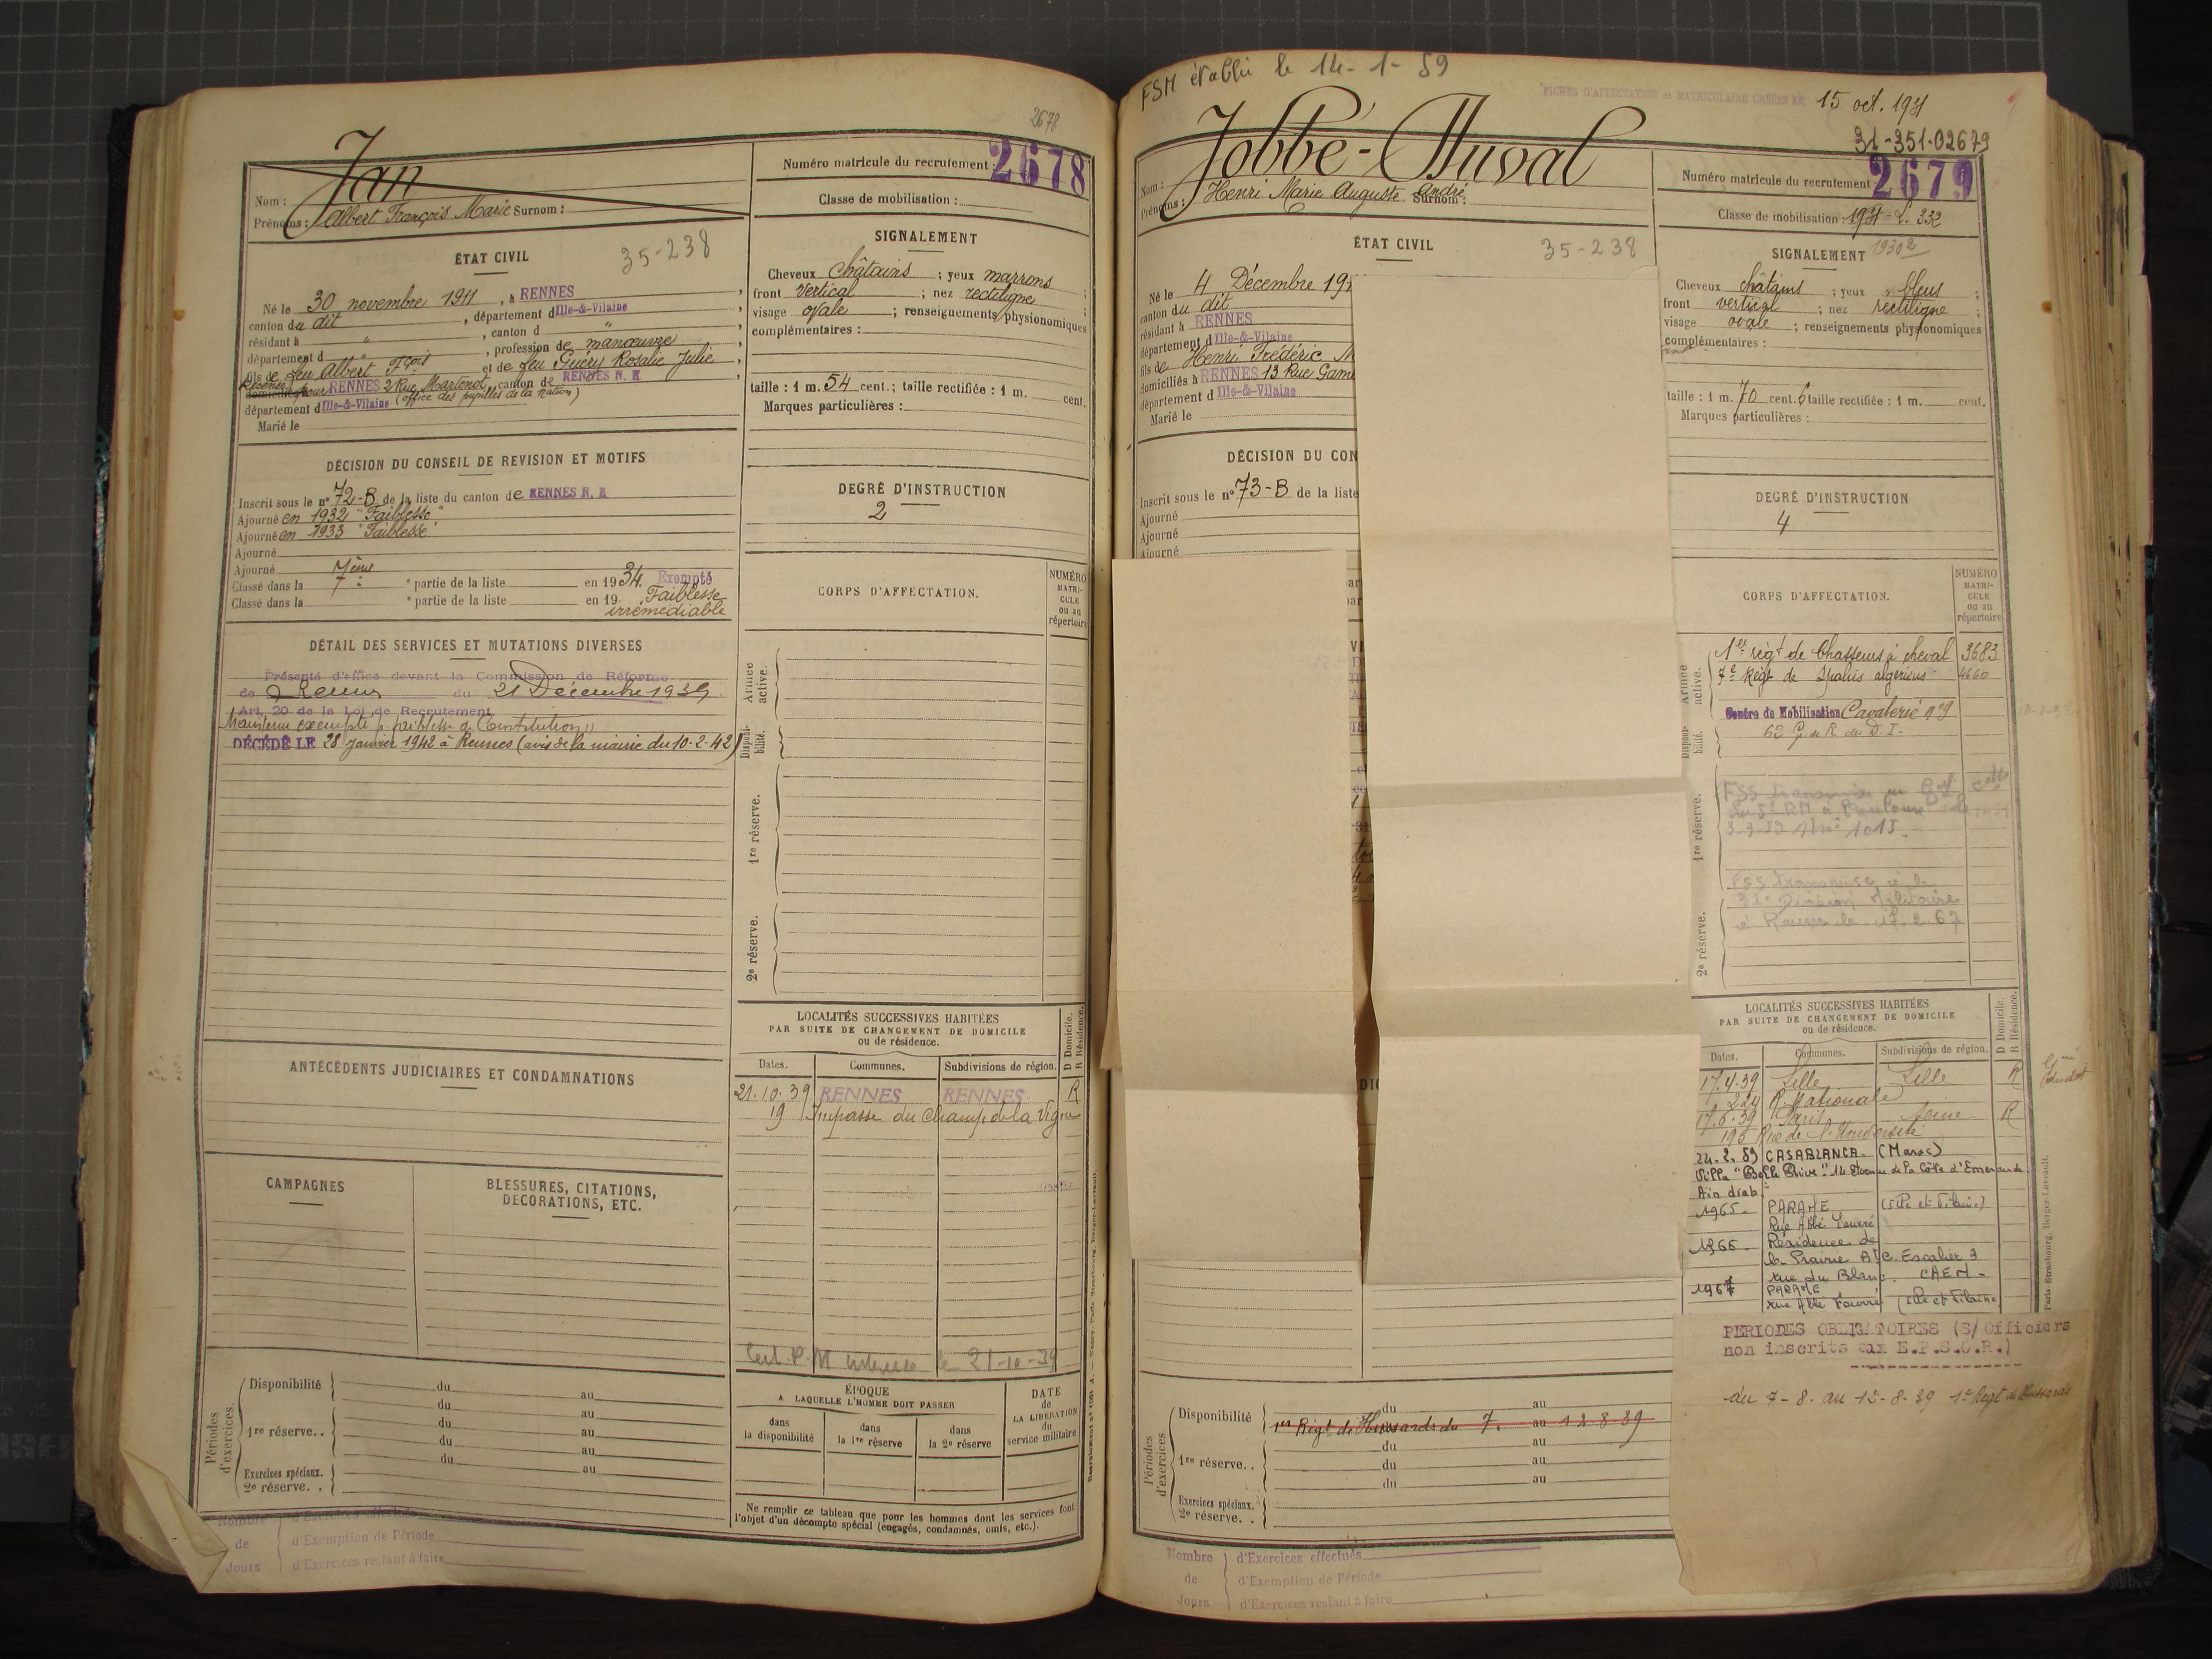 2678
Jan
Nom :
Prénoms : Albert François Marie Surnom :
Numéro matricule du recrutement : 2678
Classe de mobilisation :
ÉTAT CIVIL
35-238
Né le 30 novembre 1911, à RENNES,
canton du dit, département d Ille-&-Vilaine
résidant à " , canton d "
département d " , profession de manœuvre
fils de feu Albert Fçois et de feu Guéry Rosalie Julie,
Recensé pour RENNES 2 Rue Martenot, canton de RENNES N. E
département d Ille-&-Vilaine (office des pupilles de la nation)
Marié le
SIGNALEMENT
Cheveux châtains ; yeux marrons ;
front vertical ; nez rectiligne ;
visage ovale ; renseignements physionomiques
complémentaires :
taille : 1 m. 54 cent. ; taille rectifiée : 1 m. cent.
Marques particulières :
DÉCISION DU CONSEIL DE REVISION ET MOTIFS
Inscrit sous le n° 72-B de la liste du canton de RENNES N. E
Ajourné en 1932 "Faiblesse"
Ajourné en 1933 "Faiblesse"
Ajourné
Ajourné
Classé dans la 7ème partie de la liste en 1934. Exempté
Classé dans la ° partie de la liste en 19 Faiblesse
irrémédiable
DEGRÉ D'INSTRUCTION
2
DÉTAIL DES SERVICES ET MUTATIONS DIVERSES
Présenté d'office devant la Commission de Réforme
de Rennes du 21 Décembre 1939
Art. 20 de la Loi de Recrutement
Maintenu exempté p. faiblesse de Constitution
DÉCÉDÉ LE 28 janvier 1942 à Rennes (avis de la mairie du 10-2-42)
CORPS D'AFFECTATION.
NUMÉRO
MATRI-
CULE
ou au
répertoire
Armée active.
Disponi-bilité.
1re réserve.
2e réserve.
ANTÉCÉDENTS JUDICIAIRES ET CONDAMNATIONS
LOCALITÉS SUCCESSIVES HABITÉES
PAR SUITE DE CHANGEMENT DE DOMICILE
ou de résidence.
D Domicile.
R Résidence.
Dates. Communes. Subdivisions de région.
21.10.39 RENNES RENNES R
19 Impasse du Champ de la Vigne
CAMPAGNES
BLESSURES, CITATIONS,
DÉCORATIONS, ETC.
le 21-10-39
Périodes d'exercices.
Disponibilité du au
du au
1re réserve.. du au
du au
Exercices spéciaux. du au
2e réserve. .
ÉPOQUE
A LAQUELLE L'HOMME DOIT PASSER
dans la disponibilité
dans la 1re réserve
dans la 2e réserve
DATE
de
LA LIBÉRATION
du
service militaire
Ne remplir ce tableau que pour les hommes dont les services font
l'objet d'un décompte spécial (engagés, condamnés, omis, etc.).
Nombre d'Exercices effectués
de d'Exemption de Période
Jours d'Exercices restant à faire
FSM établi le 14-1-59
FICHES D'AFFECTATION et MATRICULAIRE CRÉÉES LE 15 oct. 1931
31-351-02679
Jobbé-Duval
Nom :
Prénoms : Henri Marie Auguste André Surnom :
Numéro matricule du recrutement 2679
Classe de mobilisation : 1931
ÉTAT CIVIL
35-238
Né le 4 Décembre 19
canton du dit
résidant à RENNES
département d Ille-&-Vilaine
fils de Henri Frédéric M
domiciliés à RENNES 13 Rue Gam
département d Ille-&-Vilaine
Marié le
SIGNALEMENT 1930
Cheveux châtains ; yeux bleus ;
front vertical ; nez rectiligne ;
visage ovale ; renseignements physionomiques
complémentaires :
taille : 1 m. 70 cent. 6 taille rectifiée : 1 m. cent.
Marques particulières :
DÉCISION DU CON
Inscrit sous le n° 73-B de la liste
Ajourné
Ajourné
Ajourné
DEGRÉ D'INSTRUCTION
4
CORPS D'AFFECTATION.
NUMÉRO
MATRI-
CULE
ou au
répertoire
Armée active.
1er régt de Chasseurs à cheval 3683
7e Régt de Spahis algériens 4660
Disponi-bilité.
Centre de Mobilisation Cavalerie n°9
62 G. de R. de D. I.
1re réserve.
FSS transmise au
3-3-59 1015
2e réserve.
FSS transmise à la
31e Division Militaire
à Rennes le 17.2.67
LOCALITÉS SUCCESSIVES HABITÉES
PAR SUITE DE CHANGEMENT DE DOMICILE
ou de résidence.
D Domicile.
R Résidence.
Dates. Communes. Subdivisions de région.
17.4.39 Lille Lille R
224 R. Nationale
17.6.39 Paris Seine R
195 Rue de l'Université
24.2.59 CASABLANCA. (Maroc)
Villa "Belle Rive" 14 Avenue de la Côte d'Emeraude.
Aïn diab.
1965- PARAMÉ (Ille et Vilaine)
Rue Abbé Fouvré
1966- Résidence de
la Prairie Bt C. Escalier 3
rue du Blanc. CAEN-
1967 PARAMÉ
rue Abbé Fouvré (Ille et Vilaine
PERIODES OBLIGATOIRES (S/Officiers
non inscrits aux E.P.S.O.R.)
du 7-8. au 12-8-39 1er Régt de Hussards
Périodes d'exercices.
Disponibilité du au
1er Régt de Hussards du 7. au 12-8-39
du au
1re réserve.. du au
du au
Exercices spéciaux.
2e réserve. .
Nombre d'Exercices effectués
de d'Exemption de Période
Jours d'Exercices restant à faire